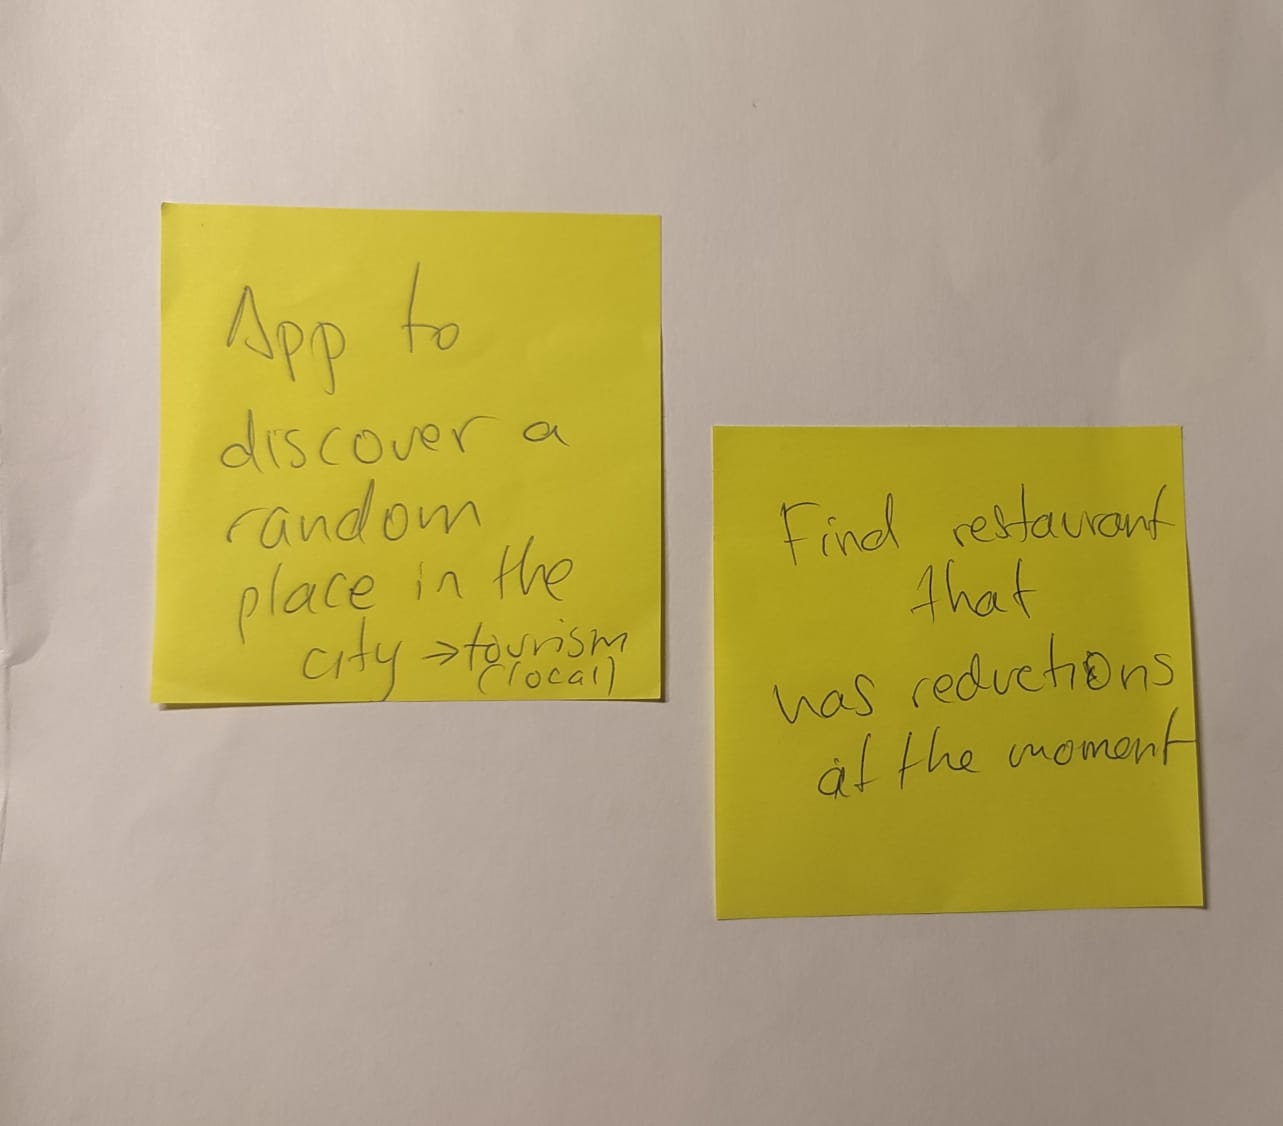 App to
discover a
random
place in the
city → tourism
(local)
Find restaurant
that
has reductions
at the moment